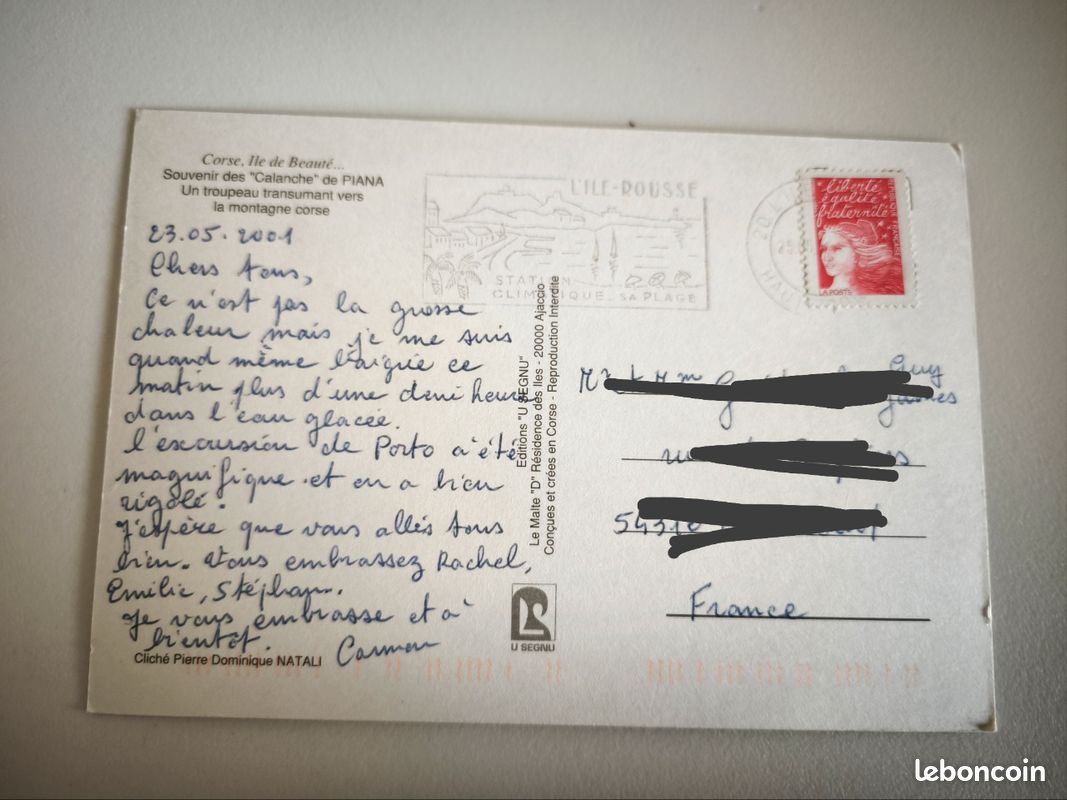 Corse, Ile de Beauté...
Souvenir des "Calanche" de PIANA
Un troupeau transumant vers
la montagne corse
23.05.2001
Chers tous,
Ce n'est pas la grosse
chaleur mais je me suis
quand même baignée ce
matin plus d'une demi heure
dans l'eau glacée.
l'excursion de Porto a été
magnifique et on a bien
rigolé.
J'espère que vous allés tous
bien. Vous embrassez Rachel,
Emilie, Stéphan.
Je vous embrasse et à
bientôt.
Carmen
Cliché Pierre Dominique NATALI
Editions "U SEGNU"
Le Malte "D" Résidence des Iles - 20000 Ajaccio
Conçues et crées en Corse - Reproduction Interdite
U SEGNU
L'ILE-ROUSSE
STATION
CLIMATIQUE SA PLAGE
liberté
égalité
fraternité
LA POSTE
Guy
James
France
leboncoin